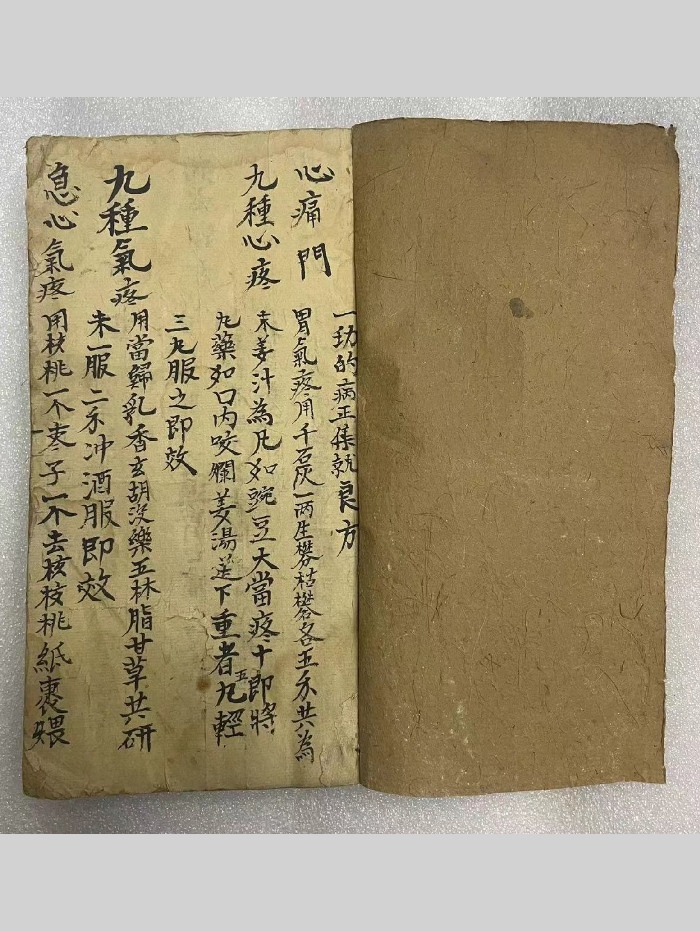 一玏的病正集就良方
心痛門
胃氣疼用千石灰一兩生礬枯礬各五禾共為
九種心疼
末姜汁為凡如豌豆大當疼十即將
九藥如口內咬爛姜湯送下重者五九輕
三九服之即效
九種氣疼
用當歸乳香玄胡沒藥五林脂甘草共研
末一服二禾冲酒服即效
急心氣疼
用核桃一个枣子一个去核核桃紙裹煨